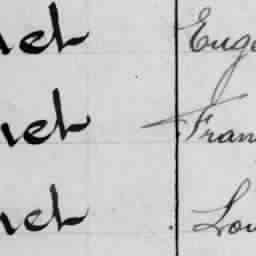 net Euge
net Fran
net Lou